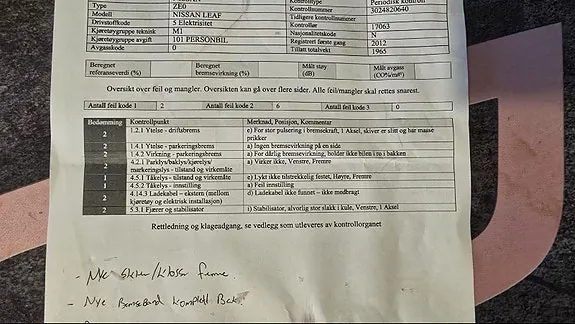 Type ZE0 Kontrolltype Periodisk kontroll
Modell NISSAN LEAF Kontrollnummer 3024820640
Drivstoffkode 5 Elektrisitet Tidligere kontrollnummer
Kjøretøygruppe teknisk M1 Kontrollør 17063
Kjøretøygruppe avgift 101 PERSONBIL Nasjonalitetskode N
Avgasskode 0 Registrert første gang 2012
Tillatt totalvekt 1965
Beregnet referanseverdi (%) Beregnet bremsevirkning (%) Målt støy (dB) Målt avgass
Oversikt over feil og mangler. Oversikten kan gå over flere sider. Alle feil/mangler skal rettes snarest.
Antall feil kode 1 2 Antall feil kode 2 6 Antall feil kode 3 0
Bedømming Kontrollpunkt Merknad, Posisjon, Kommentar
2 1.2.1 Ytelse - driftsbrems e) For stor pulsering i bremsekraft, 1 Aksel, skiver er slitt og har masse prikker
2 1.4.1 Ytelse - parkeringsbrems a) Ingen bremsevirkning på en side
2 1.4.2 Virkning - parkeringsbrems a) For dårlig bremsevirkning, holder ikke bilen i ro i bakken
2 4.2.1 Parklys/baklys/kjørelys/ markeringslys - tilstand og virkemåte a) Virker ikke, Venstre, Fremre
1 4.5.1 Tåkelys - tilstand og virkemåte e) Lykt ikke tilstrekkelig festet, Høyre, Fremre
1 4.5.2 Tåkelys - innstilling a) Feil innstilling
2 4.14.3 Ladekabel – ekstern (mellom kjøretøy og elektrisk installasjon) d) Ladekabel ikke funnet – ikke medbragt
2 5.3.1 Fjærer og stabilisator i) Stabilisator, alvorlig stor slakk i kule, Venstre, 1 Aksel
Rettledning og klageadgang, se vedlegg som utleveres av kontrollorganet
- Nye skiver/klosser fremme.
- Nye Bremsebånd komplett Bak.